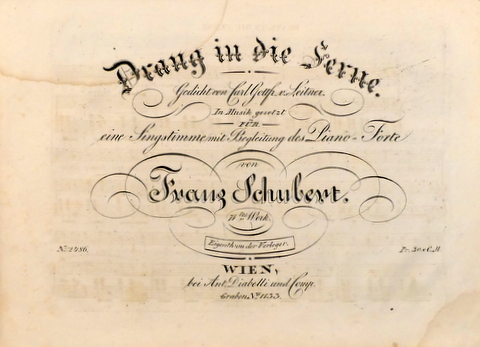 Drang in die Ferne.
Gedicht von Carl Gottfr. v. Leitner.
In Musik gesetzt
FÜR
eine Singstimme mit Begleitung des Piano-Forte
von
Franz Schubert.
71tes Werk.
Eigenthum der Verleger.
No. 2486.
Pr. 30 x C.M.
WIEN,
bei Ant. Diabelli und Comp.
Graben No. 1133.